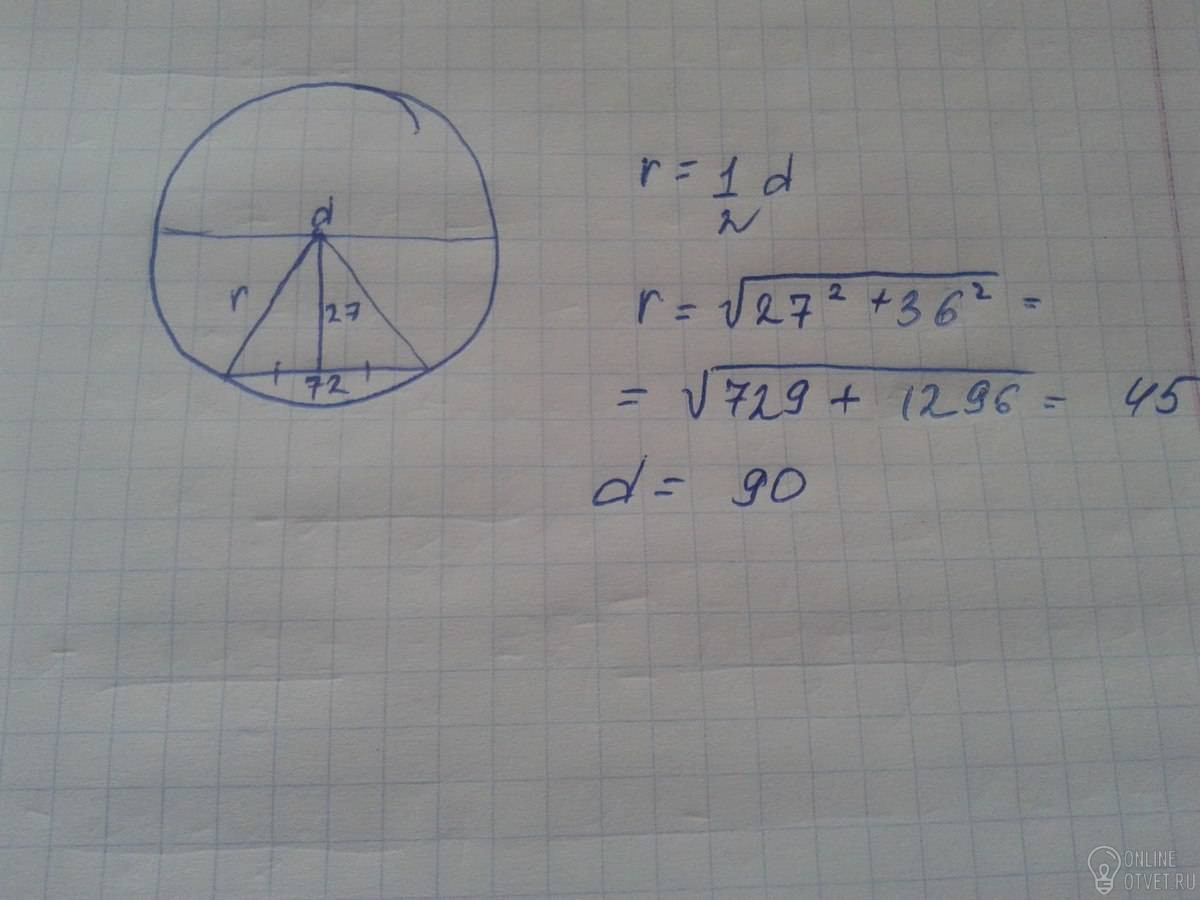 d
r
27
72
r = 1/2 d
r = √27² + 36² =
= √729 + 1296 = 45
d = 90
ONLINE
OTVET.RU